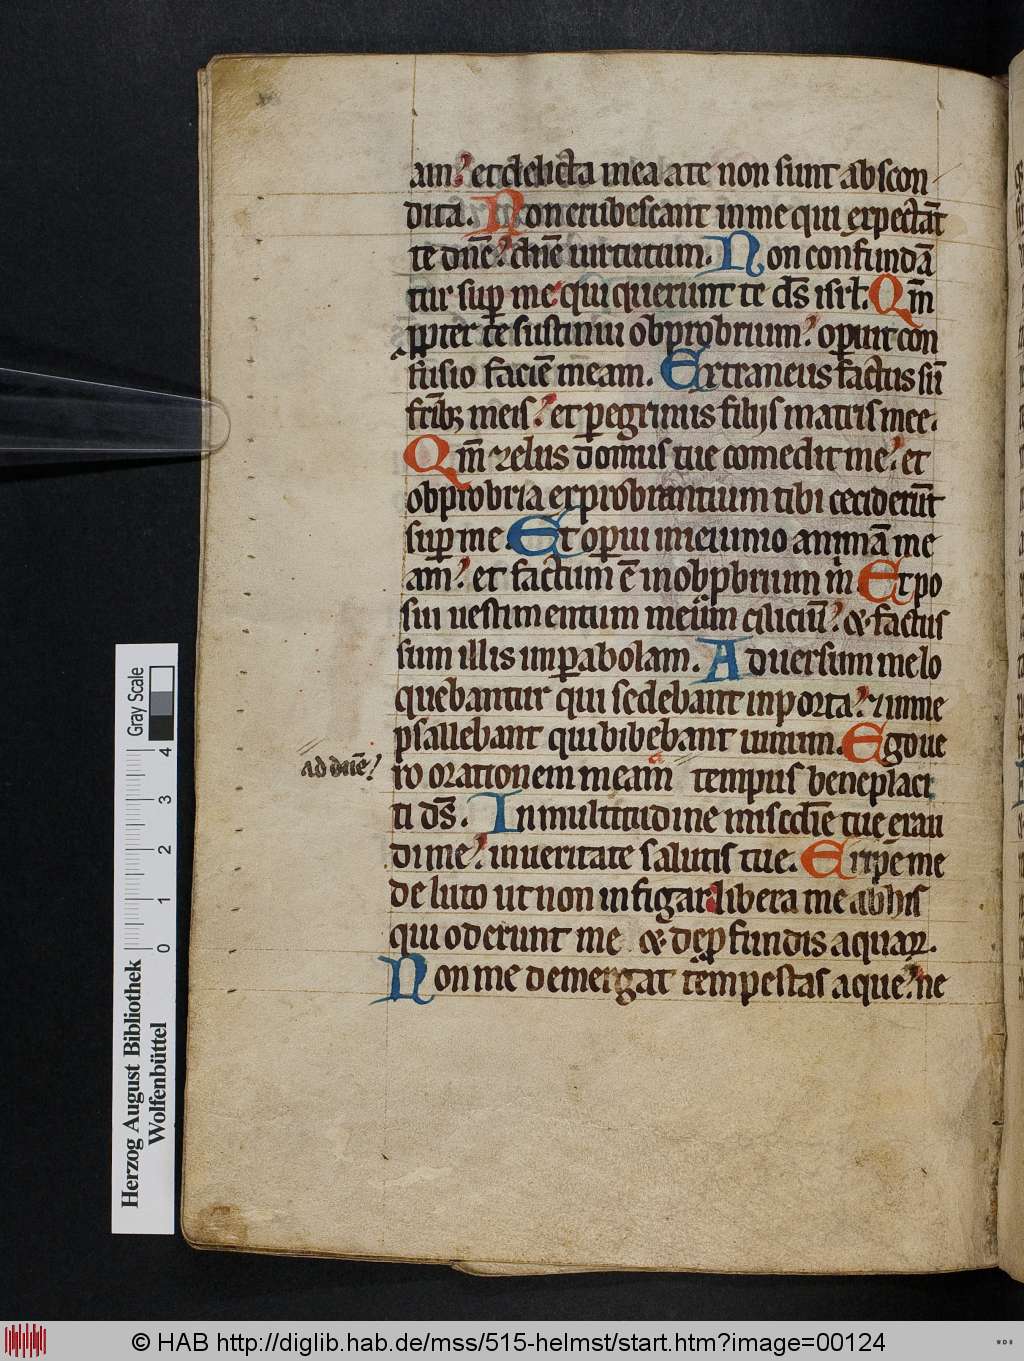 am? et delicta mea a te non sunt abscon
dita. Non erubescant in me qui expectāt
te dn̄e? dn̄e uirtutum. Non confundā
tur sup̱ me qui querunt te ds̄ isrł. Qm̄
ꝓpter te sustinui obprobrium? op̱uit con
fusio faciē meam. Extraneus factus sū
fr̄ibꝫ meis? et p̱egrinus filijs matris mee.
Qm̄ zelus domus tue comedit me? et
obprobria exprobrantium tibi ceciderūt
sup̱ me. Et op̱ui in ieiunio animā me
am? et factum ē in obꝓbrium m̄ Et po
sui uestimentum meūm ciliciū? & factus
sum illis in p̱abolam. Aduersum me lo
quebantur qui sedebant in porta? ⁊ in me
psallebant qui bibebant uinum. Ego ue
ad dn̄e?
ro orationem meam tempus beneplaci
ti ds̄. In multitudine misc̄d̄ie tue exau
di me? in ueritate salutis tue. Erip̱e me
de luto ut non infigar libera me ab his
qui oderunt me & de ꝓfundis aquaꝝ.
Non me demergat tempestas aque? ne
Herzog August Bibliothek
Wolfenbüttel
0 1 2 3 4
Gray Scale
© HAB http://diglib.hab.de/mss/515-helmst/start.htm?image=00124